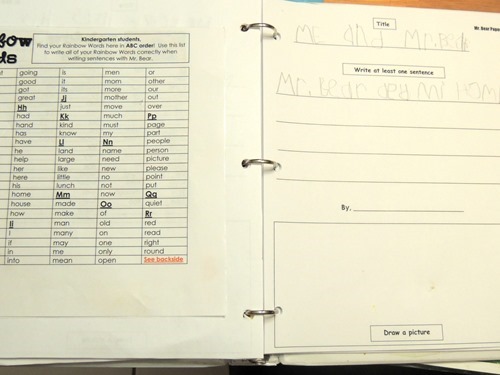 Kindergarten students,
Find your Rainbow Words here in ABC order! Use this
list to write all of your Rainbow Words correctly when
writing sentences with Mr. Bear.
going is men or
good it mom other
got its more our
great Jj mother out
Hh just move over
had Kk much Pp
hand kind must page
has know my part
have Ll Nn people
he land name person
help large need picture
her like new please
here little no point
his lunch not put
home Mm now Qq
house made Oo quiet
how make of Rr
Ii man old red
I many on read
if may one right
in me only round
info mean open See backside
Title
Mr. Bear
ME and Mr.Bear
Write at least one sentence
Mr. Bear
By,
Draw a picture